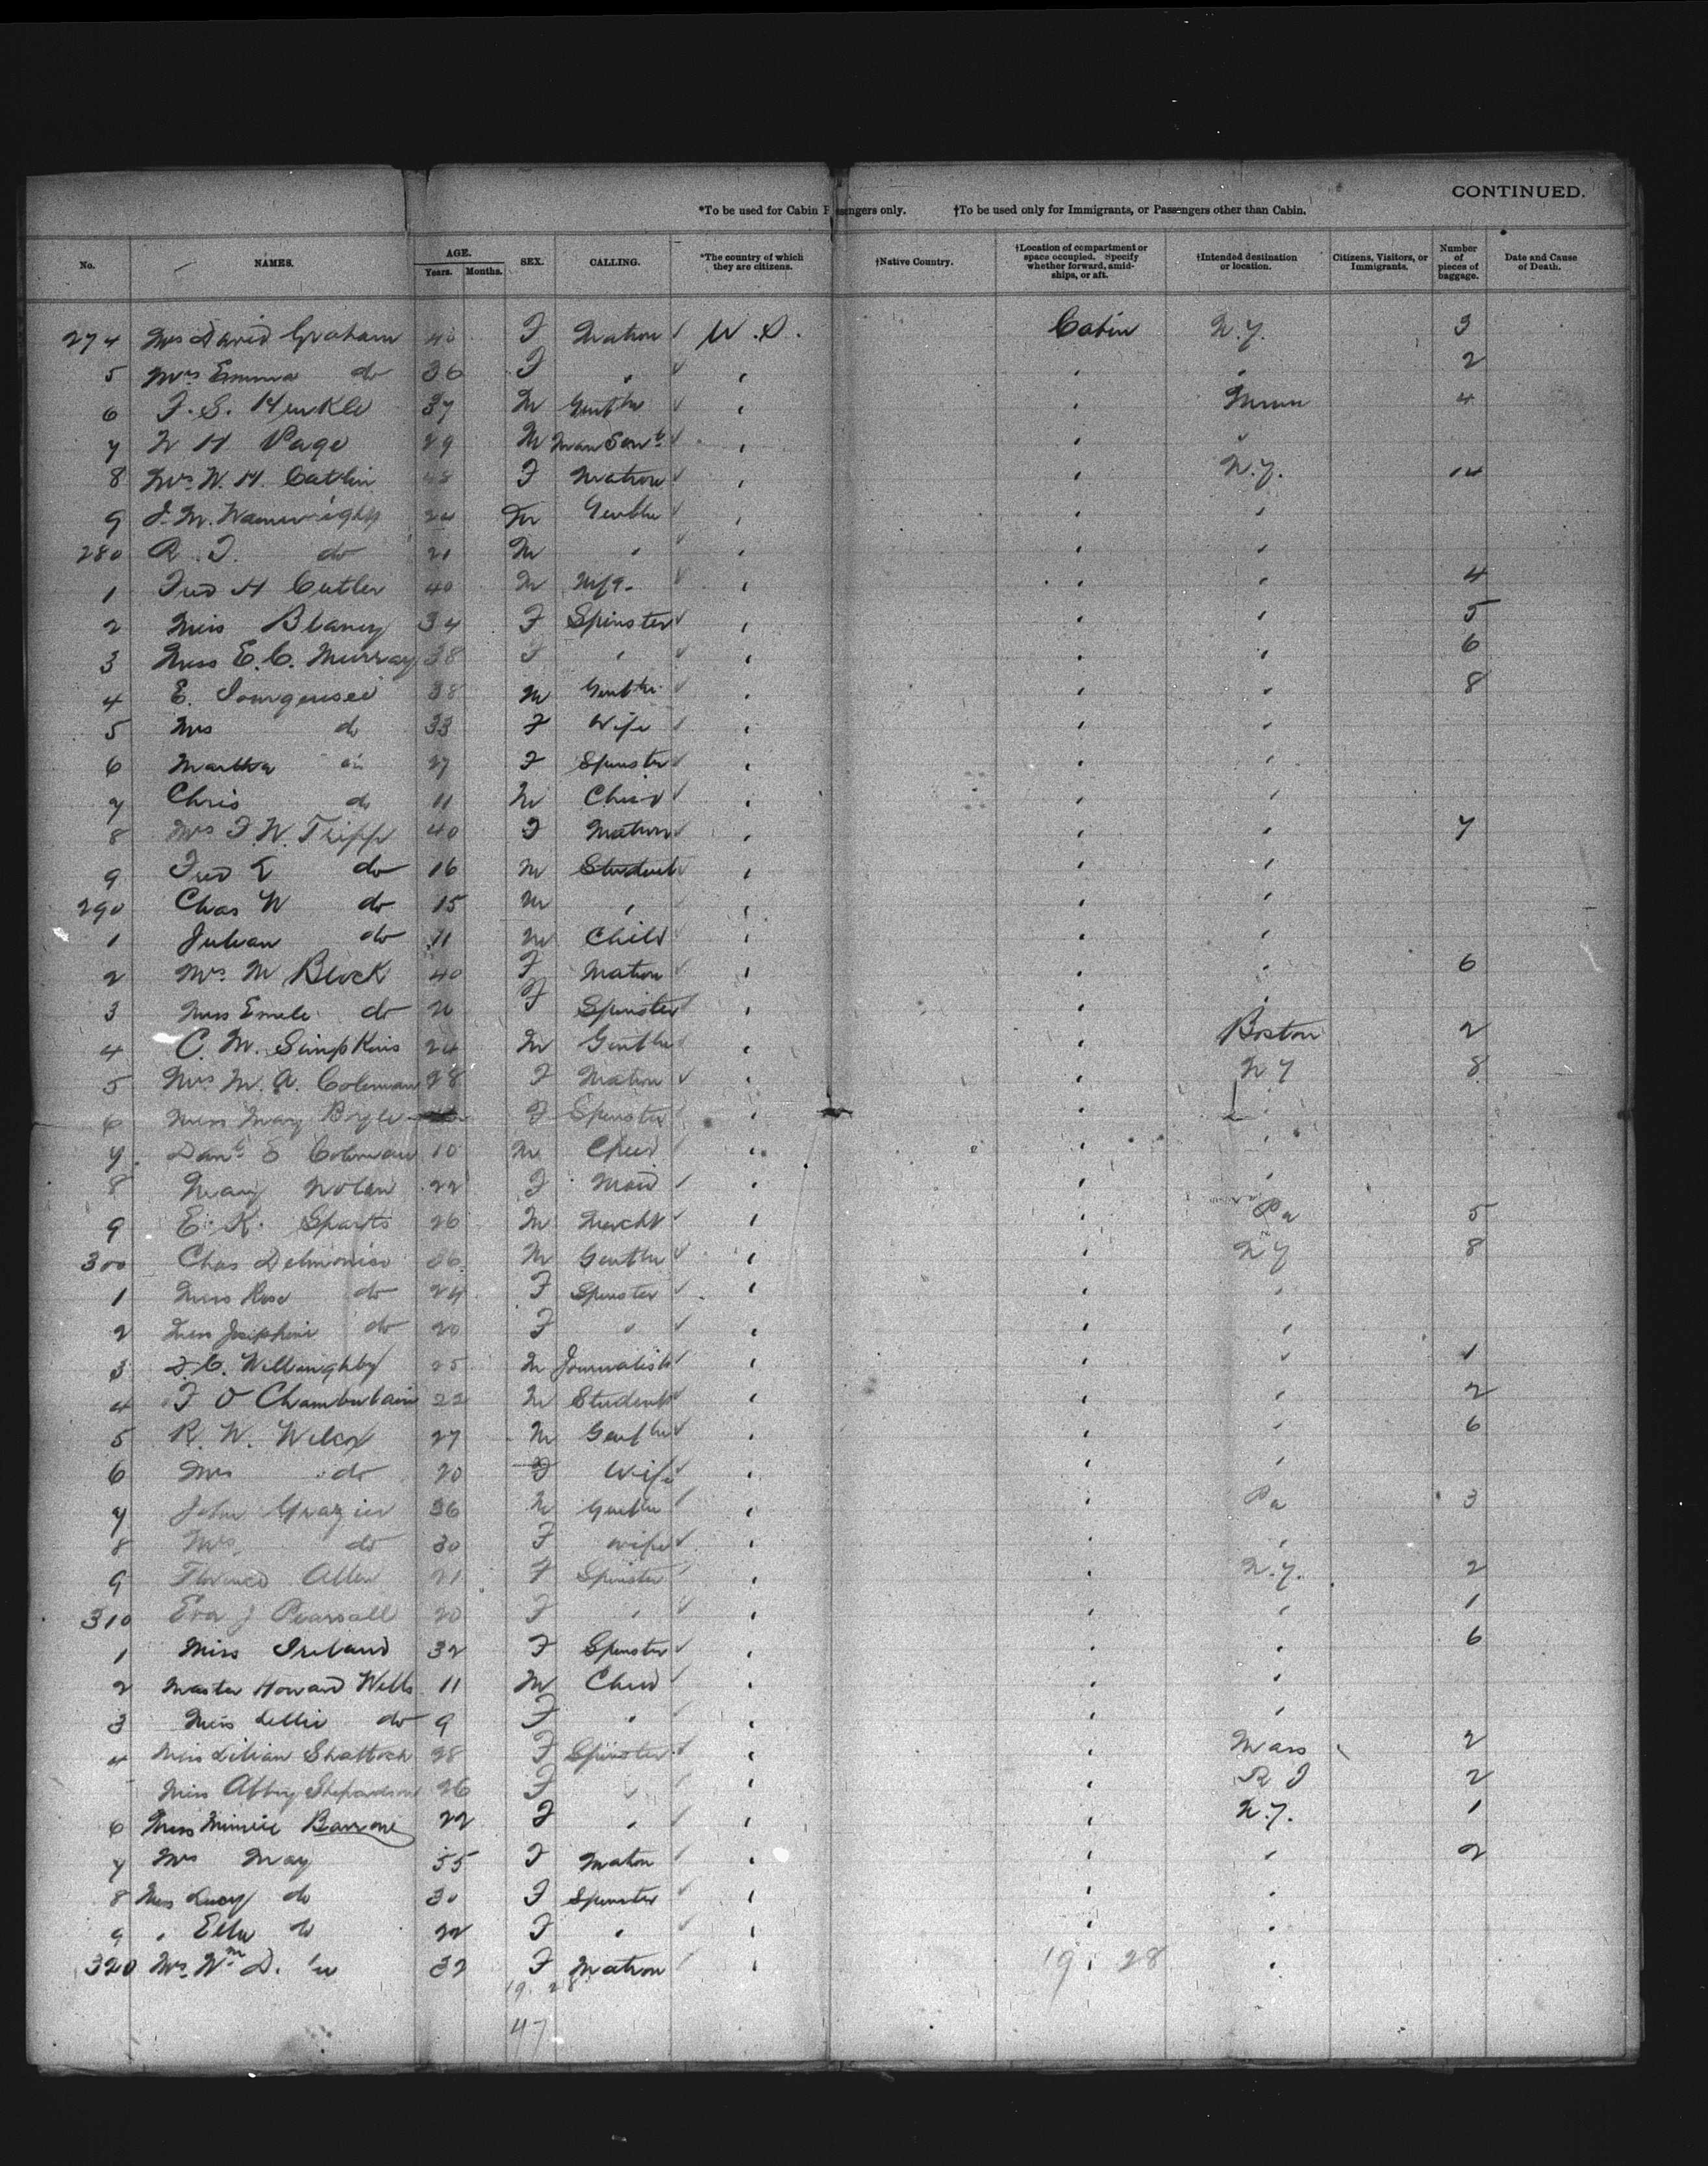 CONTINUED.
*To be used for Cabin Passengers only. †To be used only for Immigrants, or Passengers other than Cabin.
No. NAMES. AGE. Years. Months. SEX. CALLING. *The country of which they are citizens. †Native Country. †Location of compartment or space occupied. Specify whether forward, amidships, or aft. †Intended destination or location. Citizens, Visitors, or Immigrants. Number of pieces of baggage. Date and Cause of Death.
274 Mrs David Graham 40 F Matron U.S. Cabin N.Y. 3
5 Mrs Emma do 36 F " " " " 2
6 F. S. Henkle 37 M Gentln " " 4
7 W H Page 29 M Man Servt " " "
8 Mrs W. H. Catlin 48 F Matron " " N.Y. 14
9 J. M. Wainwright 24 M Gentln " " "
280 R. T. do 21 M " " " "
1 Fred H Cutler 40 M Mfg. " " " 4
2 Miss Blaney 34 F Spinster " " " 5
3 Miss E. C. Murray 38 F " " " " 6
4 E. 38 M Gentln " " " 8
5 Mrs do 33 F Wife " " "
6 Martha do 27 F Spinster " " "
7 Chris do 11 M Child " " "
8 Mrs F. W. Tripp 40 F Matron " " " 7
9 Fred do 16 M Student " " "
290 Chas W do 15 M " " " "
1 Julian do 11 M Child " " "
2 Mrs M Block 40 F Matron " " " 6
3 Miss Emele do F Spinster " " "
4 C. M. Simpkins 24 M Gentln " " Boston 2
5 Mrs M. A. Coleman 28 F Matron " " N Y 8
6 Miss Mary Boyle F Spinster " " "
7 Danl S Coleman 10 M Child " " "
8 Mary Nolan 22 F Maid " " "
9 E. K. Sparks 26 M Mercht " " Pa 5
300 Chas Delmonico M Gentln " " N Y 8
1 Miss Rosa do 24 F Spinster " " "
2 Miss Josephine do 20 F " " " "
3 Willoughby 25 M Journalist " " " 1
4 F O Chamberlain 22 M Student " " " 2
5 R. W. Wilcox 27 M Gentln " " " 6
6 Mrs do 20 F Wife " " "
7 John Grazier 36 M Gentln " " Pa 3
8 Mrs do 30 F wife " " "
9 Florence Allen 21 F Spinster " " N.Y. 2
310 Eva J Pearsall 20 F " " " " 1
1 Miss Ireland 32 F Spinster " " " 6
2 Master Howard Wells 11 M Child " " "
3 Miss Lellie do 9 F " " " "
4 Miss Lilian Shattuck 28 F Spinster " " Mass 2
Miss Abby Shepardson 26 F " " " R I 2
6 Miss Minnie Barrone 22 F " " " N.Y. 1
7 Mrs May 55 F Matron " " " 2
8 Miss Lucy do 30 F Spinster " " "
9 " Ella do 22 F " " " "
320 Mrs Wm D. do 32 F Matron " "
19. 28 19 28
47